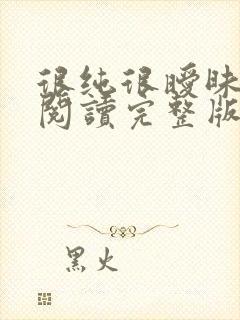 很纯很曖昧
閱讀完整版
黑火